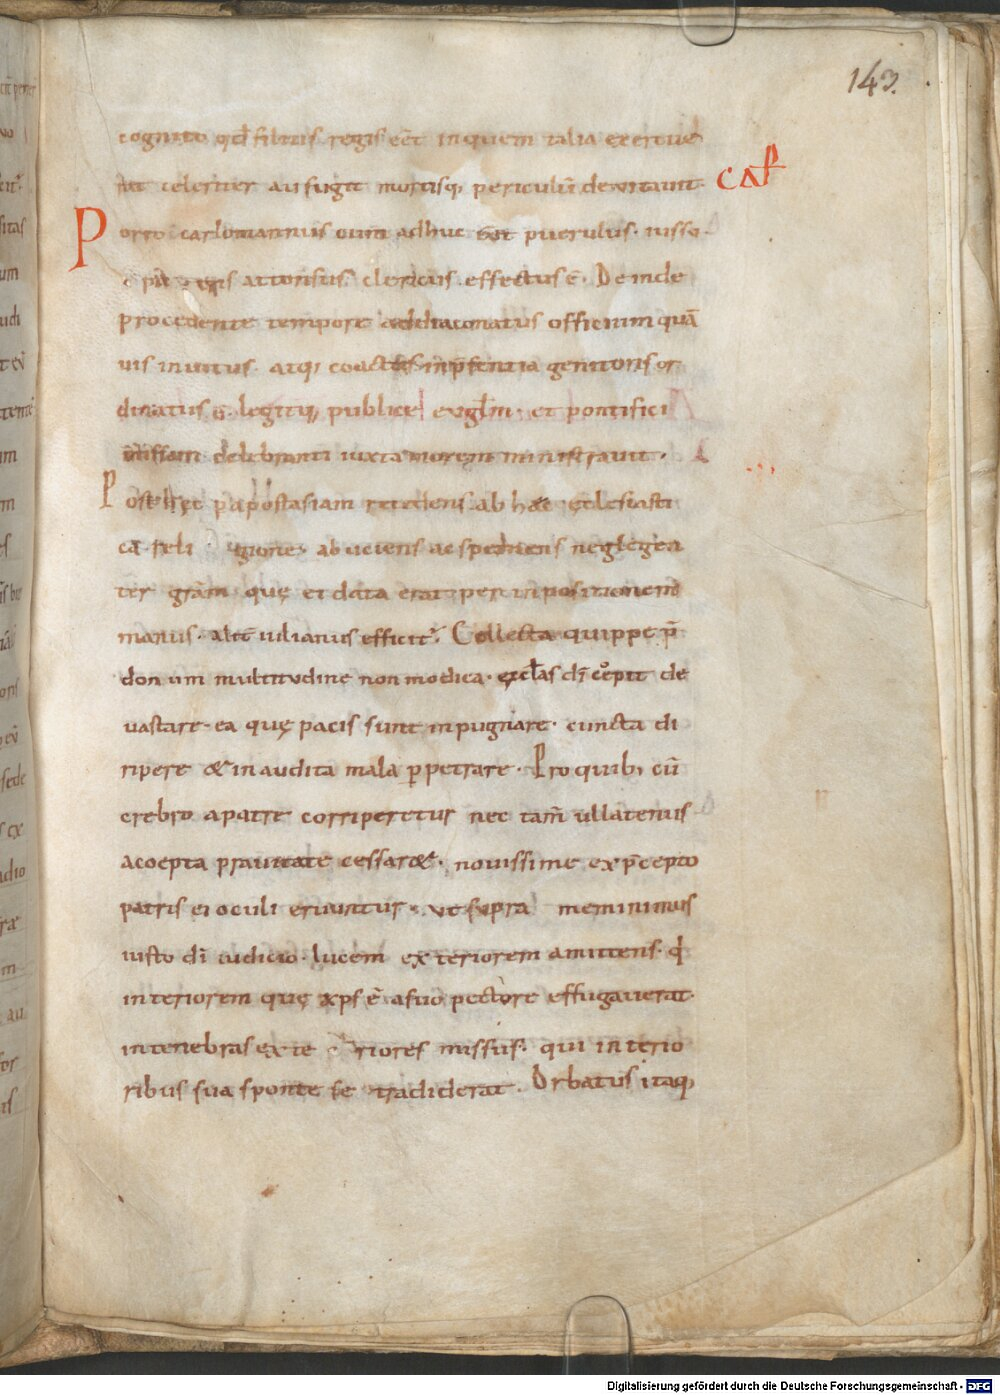 143.
cognito qd̄ filius regis eēt inquem talia exercue
rat celeriter aufugit mortisq; periculū deuitauit. CAP̄
Porro carlomannus cum adhuc eēt puerulus. iusso
patris attonsus. clericus effectus ē. Deinde
procedente tempore addiaconatus officium quā
uis inuitus. atq; coactus inp̄sentia genitoris or
dinatus ē. legitq; publice euḡlm. et pontifici
missam celebranti iuxta morem ministrauit.
Post hęc p apostasiam recedens ab hac ęcclesiasti
ca reli gione. abiciens ac spernens neglegen
ter grām quę ei data erat per inpositionem
manus. alter iulianus efficit. Collecta quippe p̄
donum multitudine non modica. ęccłas dī cępit de
uastare. ea quę pacis sunt inpugnare. cuncta di
ripere & inaudita mala ꝑpetrare. Pro quib; cū
crebro apatre corriperetur nec tam̄ ullatenus
acoepta prauitate cessar&. nouissime exp̄cepto
patris ei oculi eruuntur. ut supra meminimus
iusto dī iudicio. lucem exteriorem amittens. q̇
interiorem quę xp̄s ē asuo pectore effugauerat.
intenebras exte riores missus. qui interio
ribus sua sponte se tradiderat. Orbatus itaq;
Digitalisierung gefördert durch die Deutsche Forschungsgemeinschaft - DFG